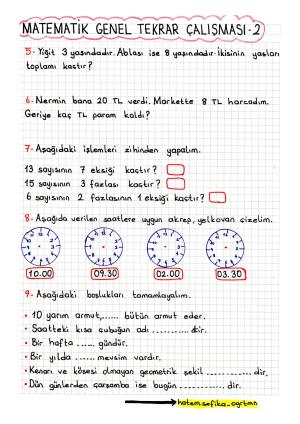 MATEMATİK GENEL TEKRAR ÇALIŞMASI-2
5- Yiğit 3 yaşındadır. Ablası ise 8 yaşındadır. İkisinin yaşları
toplamı kaçtır?
6- Nermin bana 20 TL verdi. Markette 8 TL harcadım.
Geriye kaç TL param kaldı?
7- Aşağıdaki işlemleri zihinden yapalım.
13 sayısının 7 eksiği kaçtır?
15 sayısının 3 fazlası kaçtır?
6 sayısının 2 fazlasının 1 eksiği kaçtır?
8- Aşağıda verilen saatlere uygun akrep, yelkovan çizelim.
10.00 09.30 02.00 03.30
9- Aşağıdaki boşlukları tamamlayalım.
• 10 yarım armut,...... bütün armut eder.
• Saatteki kısa çubuğun adı ........... dır.
• Bir hafta ..... gündür.
• Bir yılda ...... mevsim vardır.
• Kenarı ve köşesi olmayan geometrik şekil ............. dir.
• Dün günlerden çarşamba ise bugün ............ dir.
hatem.sefika_ogrtmn